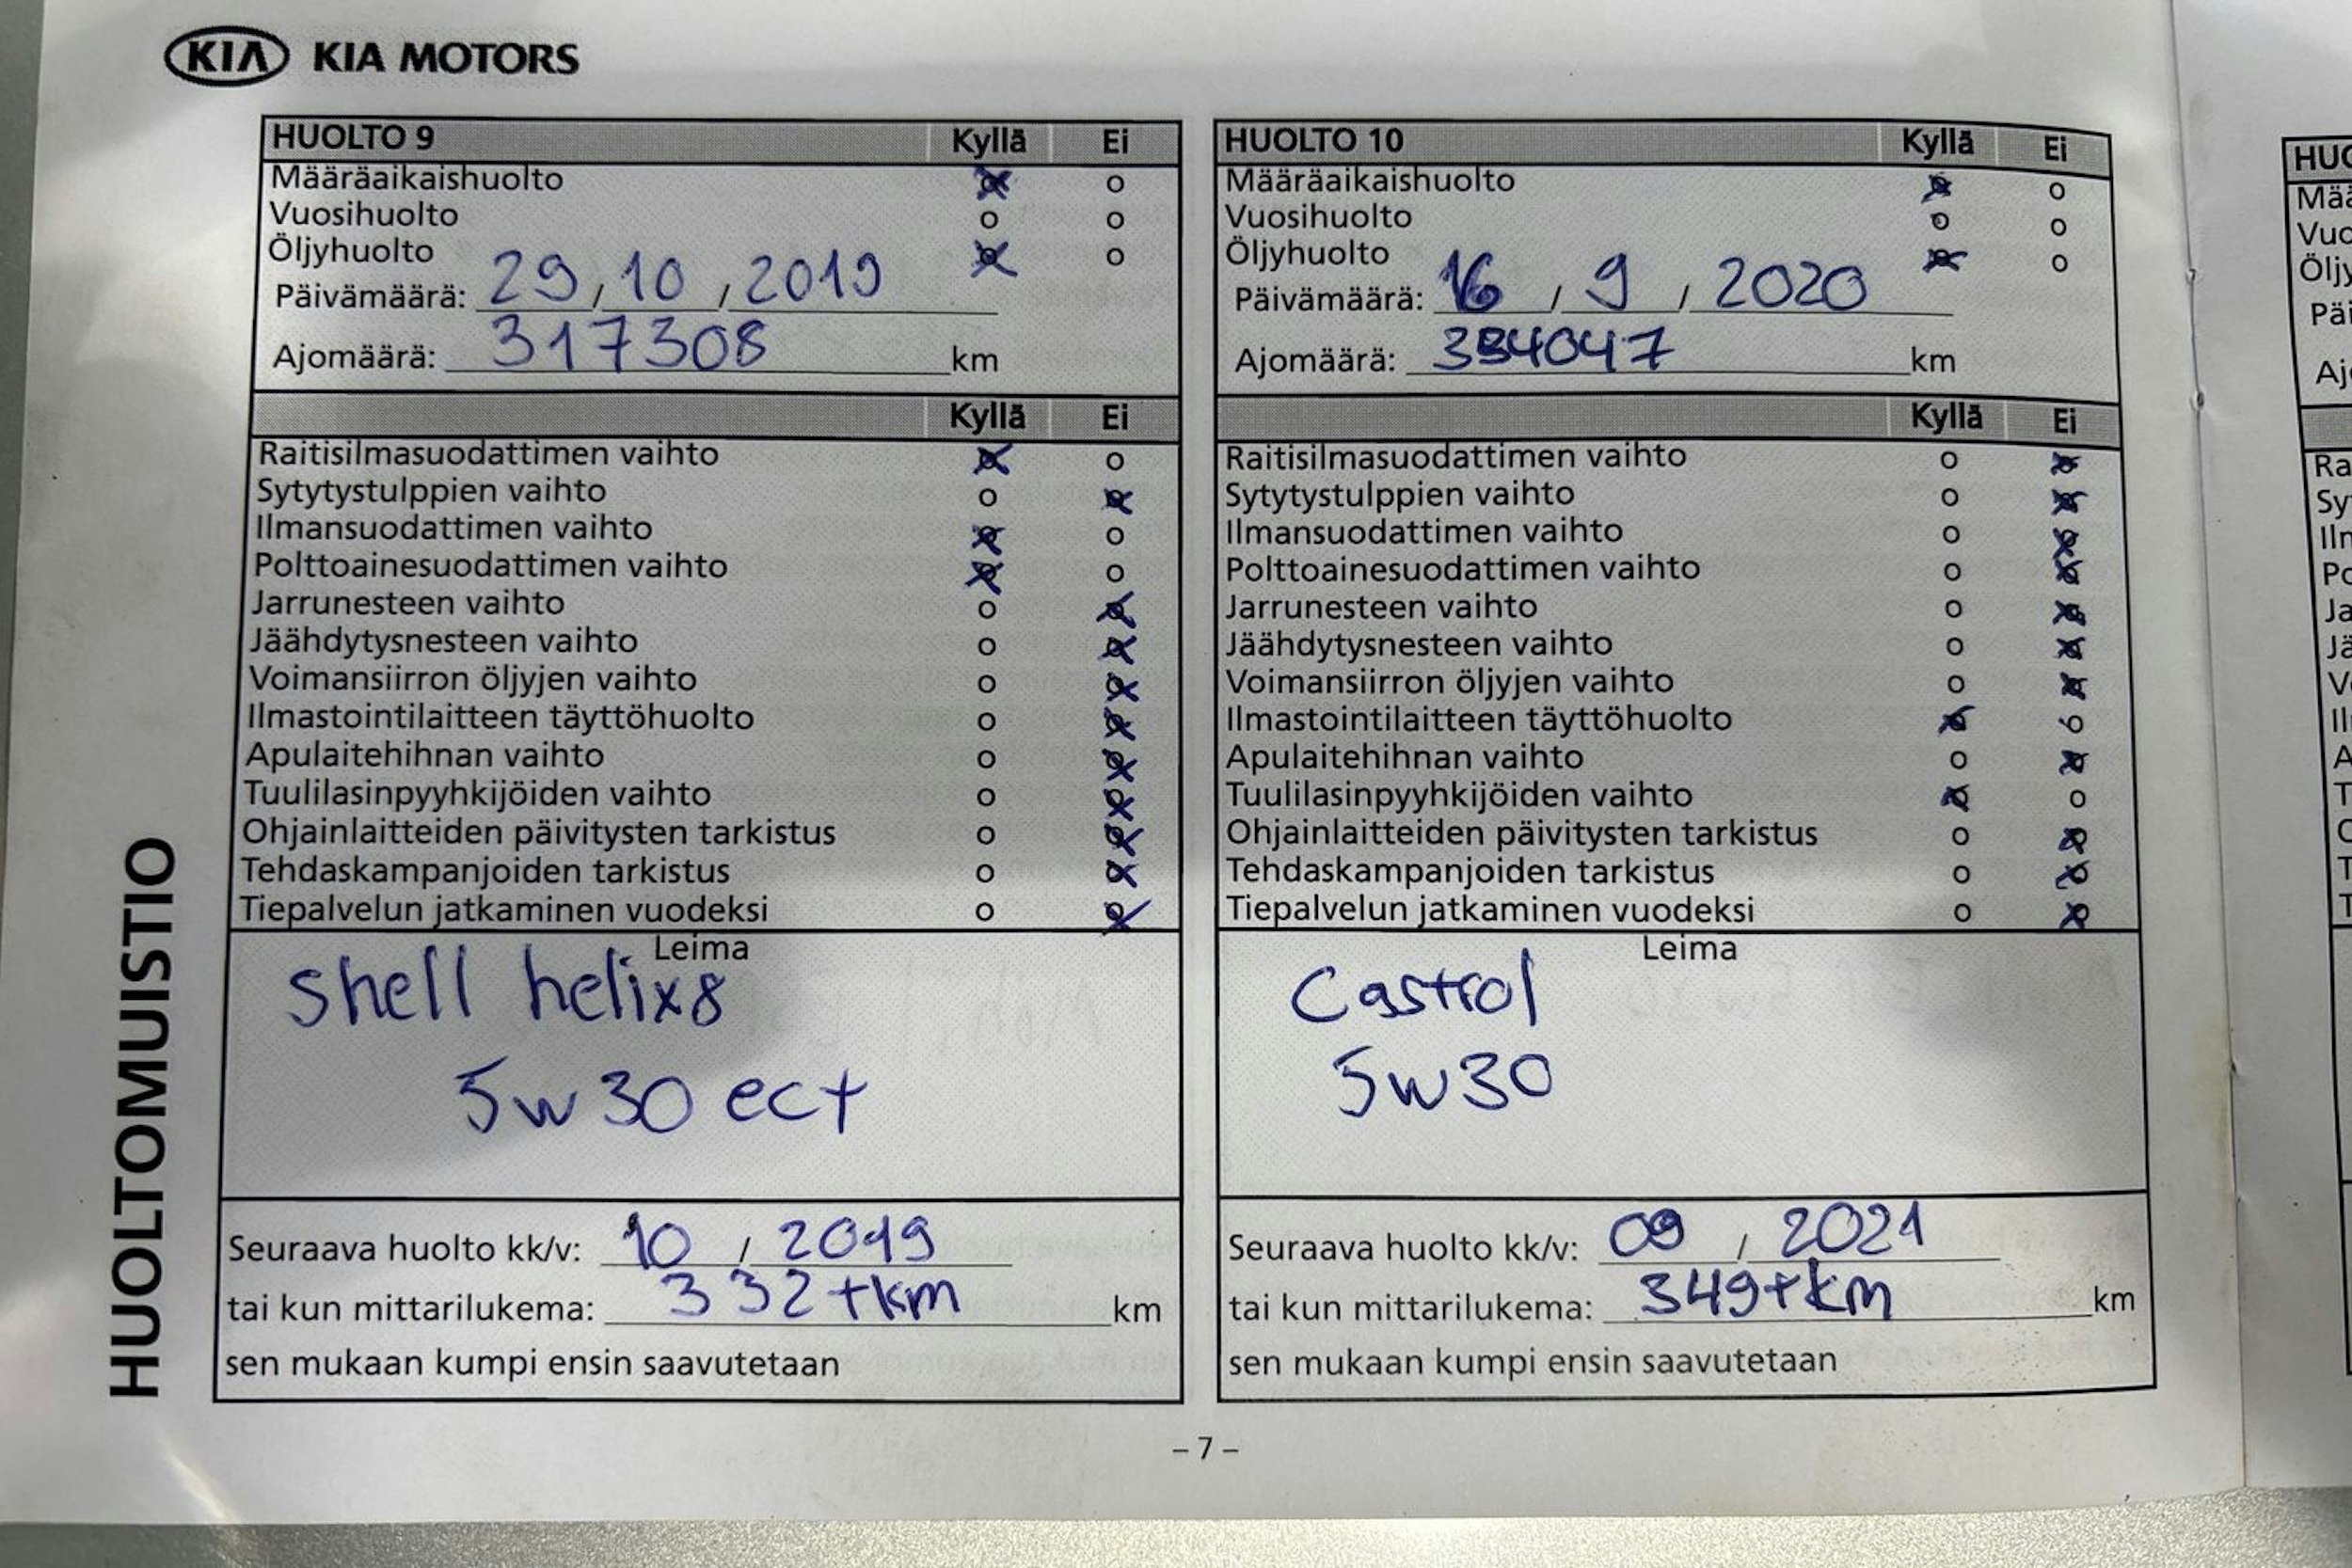 KIA KIA MOTORS
HUOLTO 9 Kyllä Ei
Määräaikaishuolto
Vuosihuolto
Öljyhuolto
Päivämäärä: 29 / 10 / 2019
Ajomäärä: 317308 km
Kyllä Ei
Raitisilmasuodattimen vaihto
Sytytystulppien vaihto
Ilmansuodattimen vaihto
Polttoainesuodattimen vaihto
Jarrunesteen vaihto
Jäähdytysnesteen vaihto
Voimansiirron öljyjen vaihto
Ilmastointilaitteen täyttöhuolto
Apulaitehihnan vaihto
Tuulilasinpyyhkijöiden vaihto
Ohjainlaitteiden päivitysten tarkistus
Tehdaskampanjoiden tarkistus
Tiepalvelun jatkaminen vuodeksi
Leima
shell helix8
5w30 ect
Seuraava huolto kk/v: 10 / 2019
tai kun mittarilukema: 332tkm km
sen mukaan kumpi ensin saavutetaan
HUOLTO 10 Kyllä Ei
Määräaikaishuolto
Vuosihuolto
Öljyhuolto
Päivämäärä: 16 / 9 / 2020
Ajomäärä: 334047 km
Kyllä Ei
Raitisilmasuodattimen vaihto
Sytytystulppien vaihto
Ilmansuodattimen vaihto
Polttoainesuodattimen vaihto
Jarrunesteen vaihto
Jäähdytysnesteen vaihto
Voimansiirron öljyjen vaihto
Ilmastointilaitteen täyttöhuolto
Apulaitehihnan vaihto
Tuulilasinpyyhkijöiden vaihto
Ohjainlaitteiden päivitysten tarkistus
Tehdaskampanjoiden tarkistus
Tiepalvelun jatkaminen vuodeksi
Leima
Castrol
5w30
Seuraava huolto kk/v: 09 / 2021
tai kun mittarilukema: 349tkm km
sen mukaan kumpi ensin saavutetaan
HUOLTOMUISTIO
– 7 –